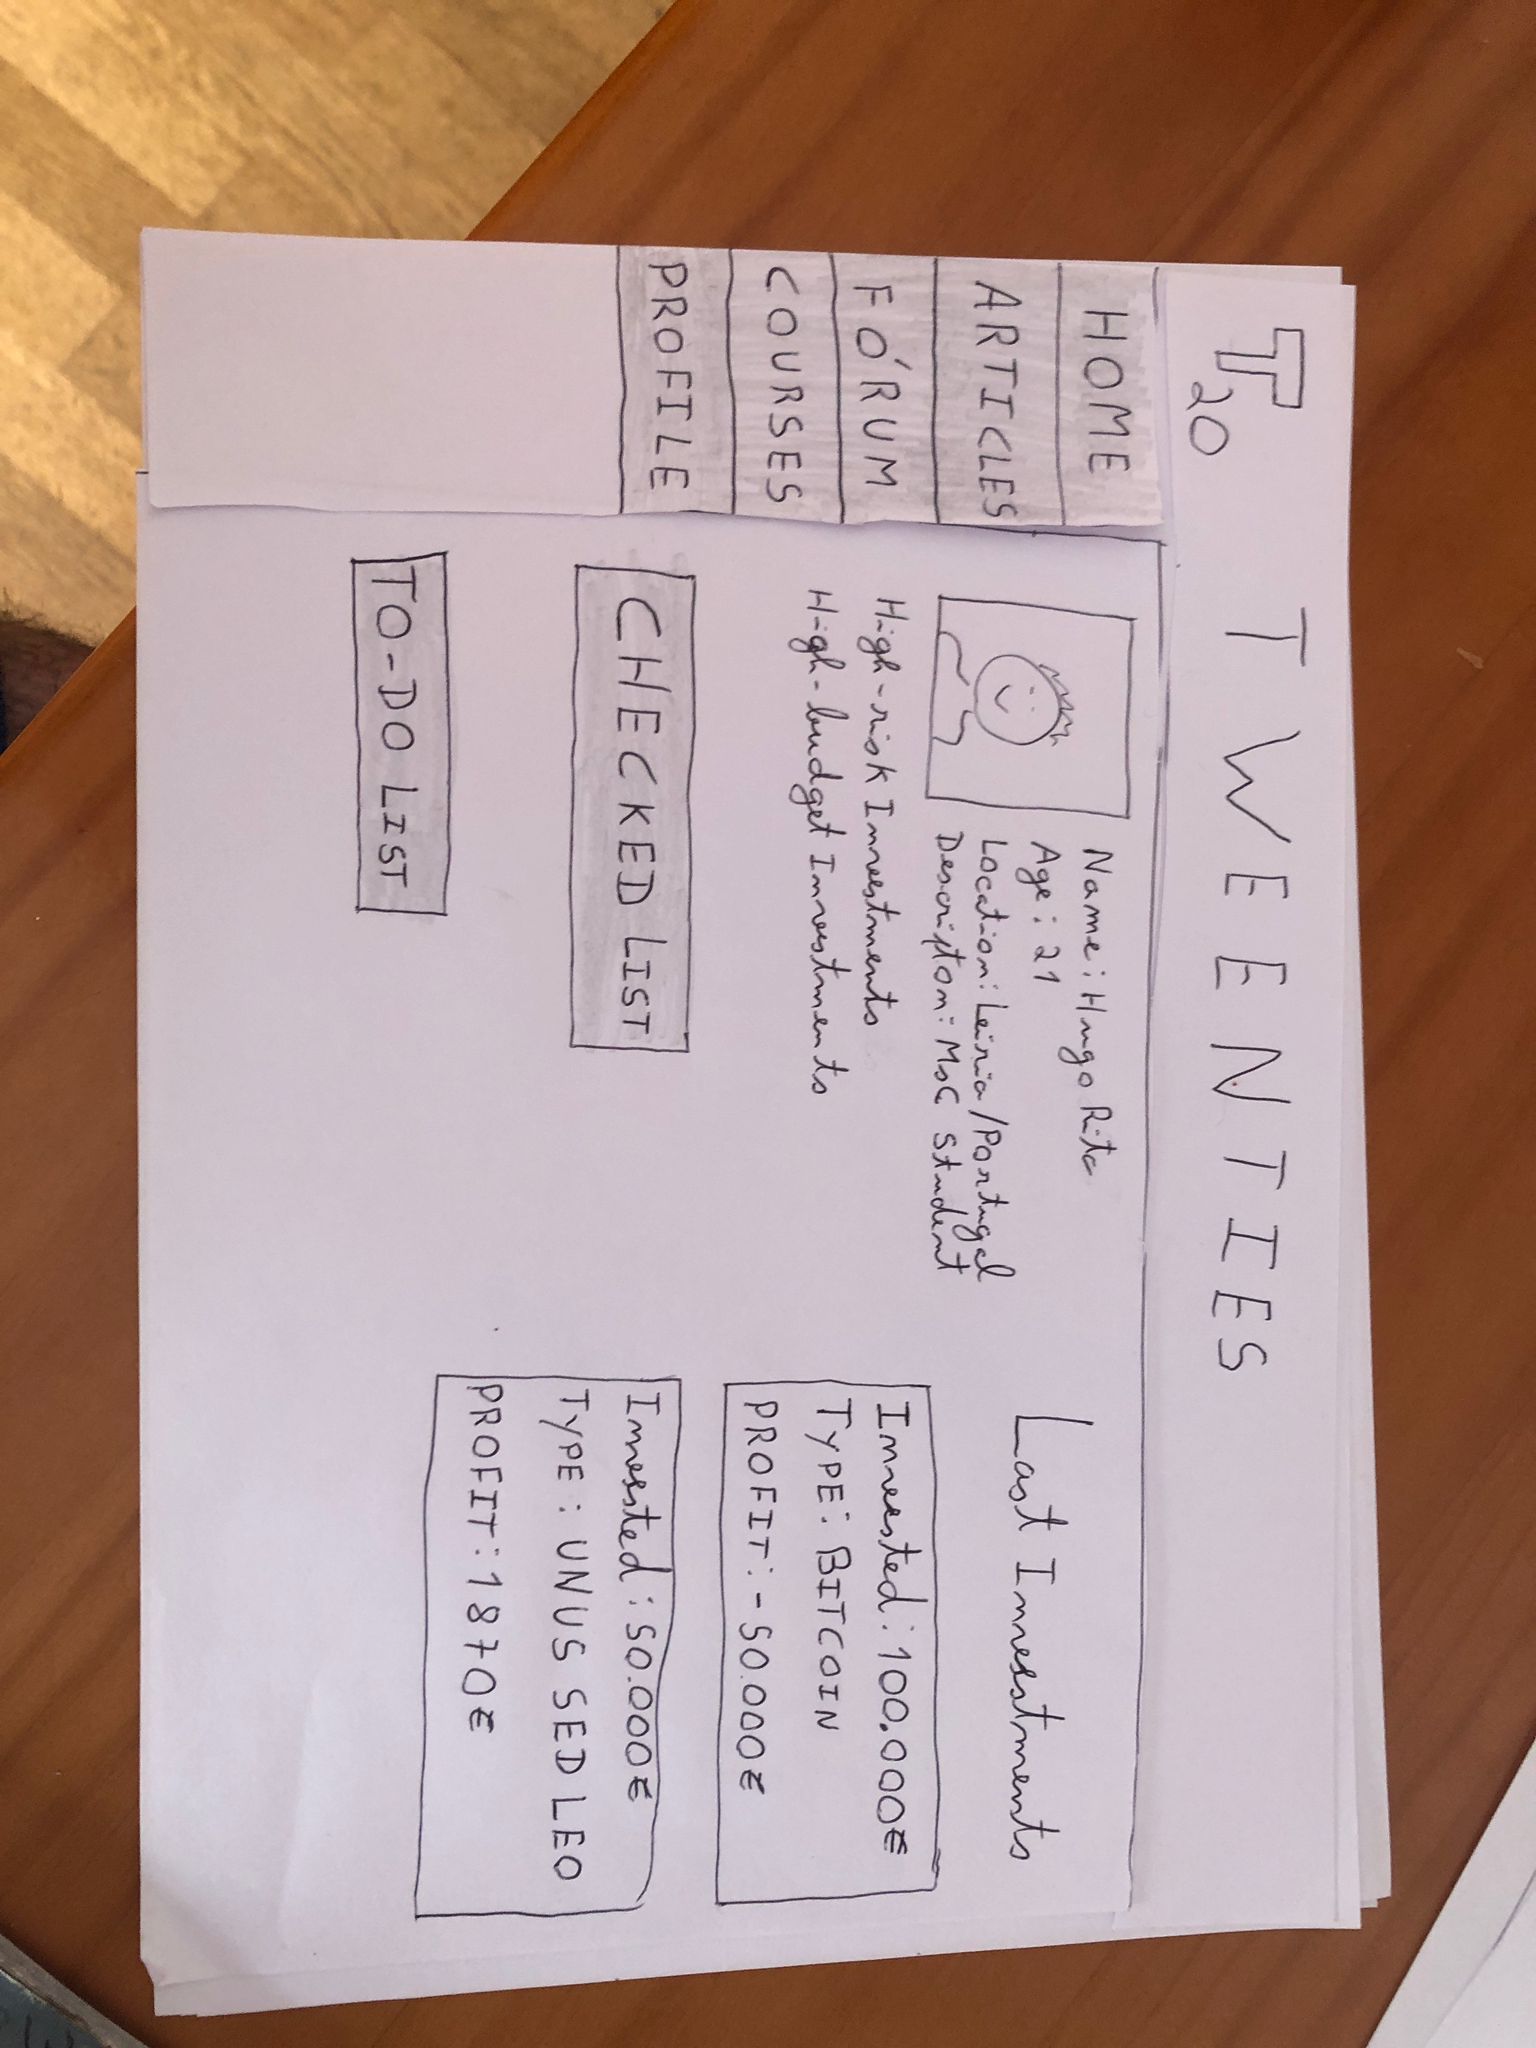 T
20
TWENTIES
HOME
ARTICLES
FÓRUM
COURSES
PROFILE
Name: Hugo Rita
Age: 21
Location: Leiria/Portugal
Descripton: MsC student
High-risk Investments
High-budget Investments
CHECKED LIST
TO-DO LIST
Last Investments
Invested: 100.000€
TYPE: BITCOIN
PROFIT: -50.000€
Invested: 50.000€
TYPE: UNUS SED LEO
PROFIT: 1870€